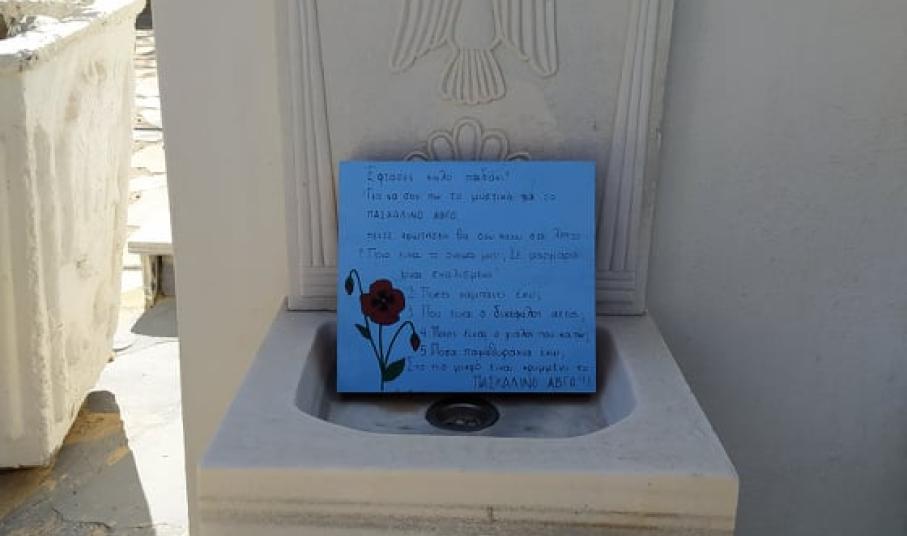 Έφτασες καλό παιδάκι!
Για να σου πω το μυστικό για το
ΠΑΣΧΑΛΙΝΟ ΑΒΓΟ
πέντε ερωτήσεις θα σου κάνω στο λεπτό
1. Ποιο είναι το όνομα μου; Σε μάρμαρο
είναι σκαλισμένο!
2. Πόσες καμπάνες έχω;
3. Που είναι ο δικέφαλος αετός;
4. Ποιος είναι ο
5. Πόσα παραθυράκια έχω;
Στο πιο μικρό είναι κρυμμένο το
ΠΑΣΧΑΛΙΝΟ ΑΒΓΟ!!!